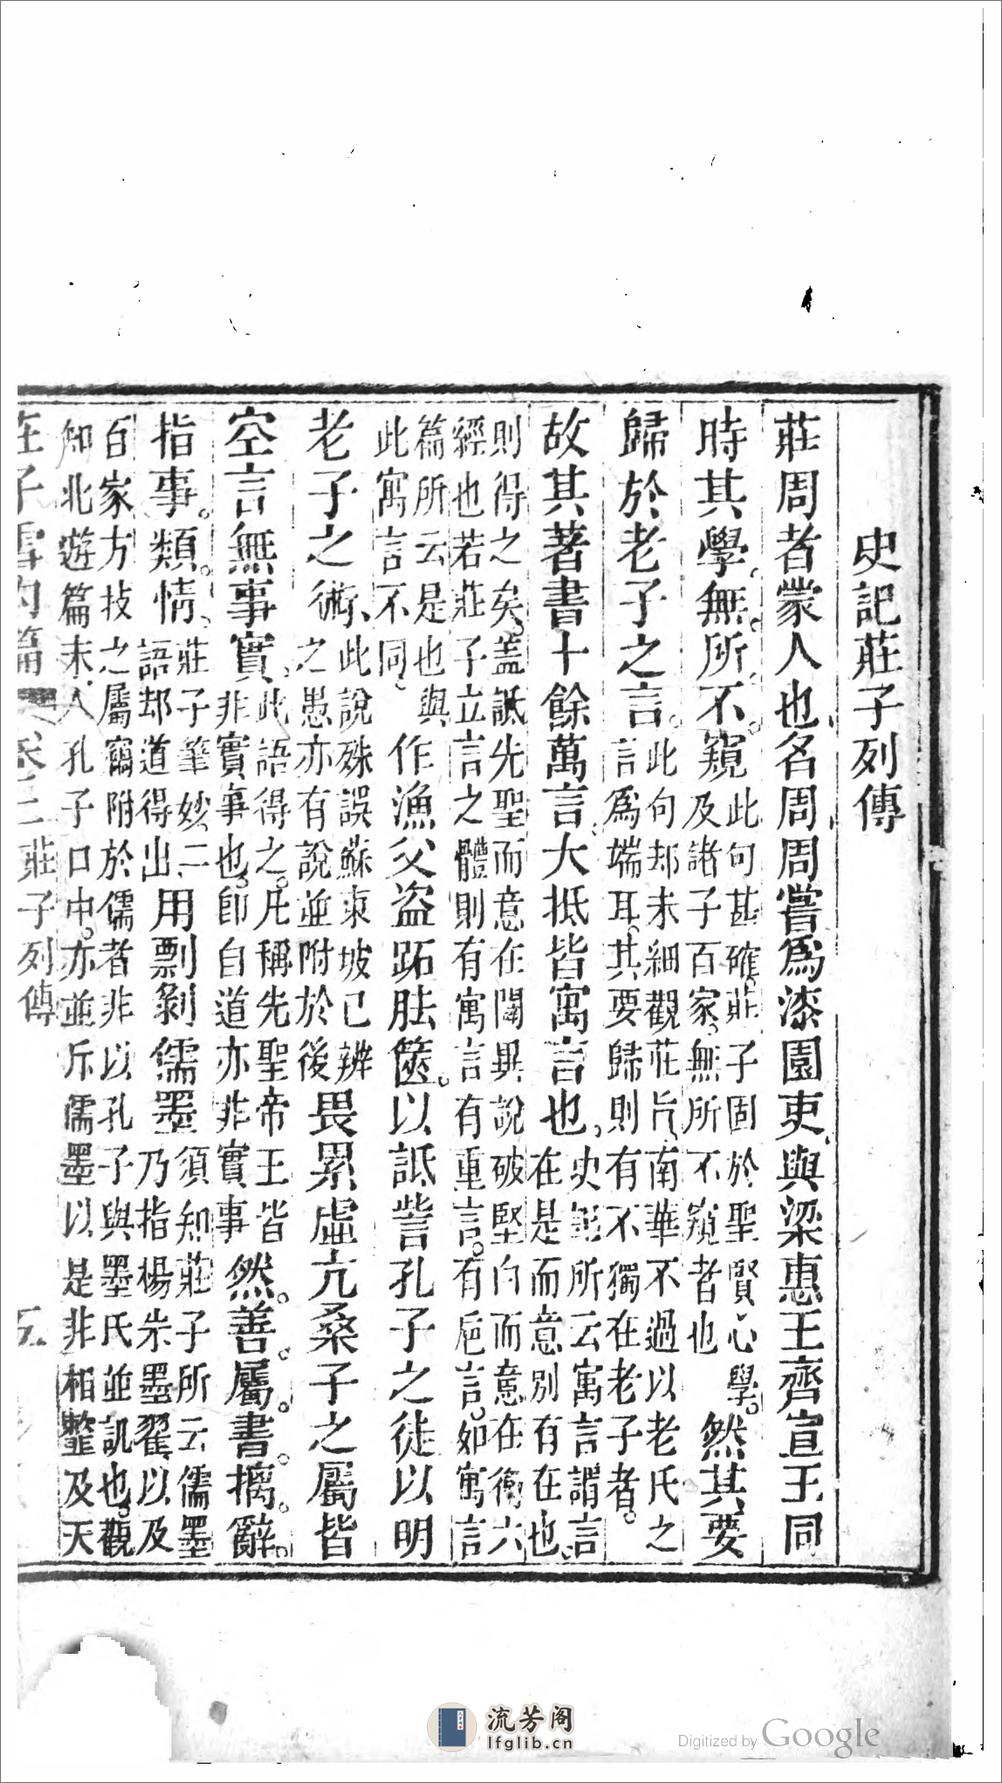 史記莊子列傳
莊周者蒙人也名周周嘗爲漆園吏與梁惠王齊宣王同
時其學無所不窺此句甚確莊子固於聖賢心學及諸子百家無所不窺者也然其要
歸於老子之言此句却未細觀莊旨南華不過以老氏之言爲端耳其要歸則有不獨在老子者
故其著書十餘萬言大抵皆寓言也史記所云寓言謂言在是而意別有在也
則得之矣蓋詆先聖而意在闢異說破堅白而意在衛六經也若莊子立言之體則有寓言有重言有巵言如寓言
篇所云是也與此寓言不同作漁父盜跖胠篋以詆訾孔子之徒以明
老子之術此說殊誤蘇東坡已辨之愚亦有說並附於後畏累虛亢桑子之屬皆
空言無事實此語得之凡稱先聖帝王皆非實事也卽自道亦非實事然善屬書摛辭
指事類情莊子筆妙二語却道得出用剽剝儒墨須知莊子所云儒墨乃指楊朱墨翟以及
百家方技之屬竊附於儒者非以孔子與墨氏並訊也觀知北遊篇末人孔子口中亦並斥儒墨以是非相𩐎及天
莊子雪內篇 卷二莊子列傳 五
流芳阁
lfglib.cn
Digitized by Google